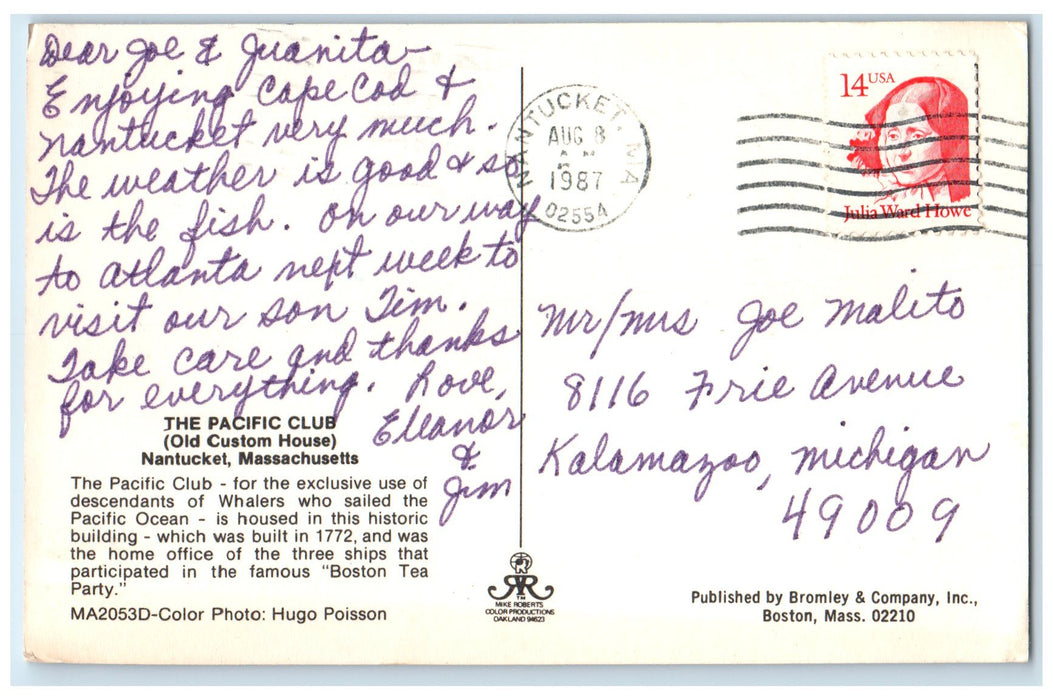 Dear Joe & Juanita—
Enjoying Cape Cod &
Nantucket very much.
The weather is good & so
is the fish. On our way
to Atlanta next week to
visit our son Tim.
Take care and thanks
for everything. Love,
Eleanor
&
Jim
THE PACIFIC CLUB
(Old Custom House)
Nantucket, Massachusetts
The Pacific Club - for the exclusive use of
descendants of Whalers who sailed the
Pacific Ocean - is housed in this historic
building - which was built in 1772, and was
the home office of the three ships that
participated in the famous "Boston Tea
Party."
MA2053D-Color Photo: Hugo Poisson
NANTUCKET, MA
AUG 8
1987
02554
14 USA
Julia Ward Howe
Mr/Mrs Joe Malito
8116 Frie Avenue
Kalamazoo, Michigan
49009
TM
MIKE ROBERTS
COLOR PRODUCTIONS
OAKLAND 94623
Published by Bromley & Company, Inc.,
Boston, Mass. 02210